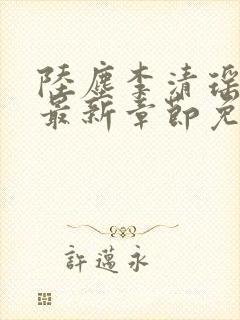 陸塵李清瑶
最新章節免
許邁永